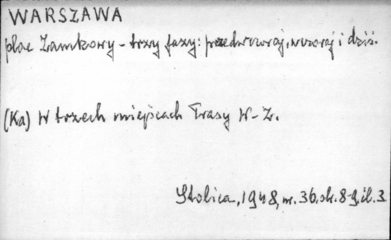 WARSZAWA
plac Zamkowy - trzy fazy: przedwczoraj, wczoraj i dziś.
(Ka) W trzech miejscach Trasy W-Z.
Stolica, 1948, nr. 36, st. 8-9, il. 3